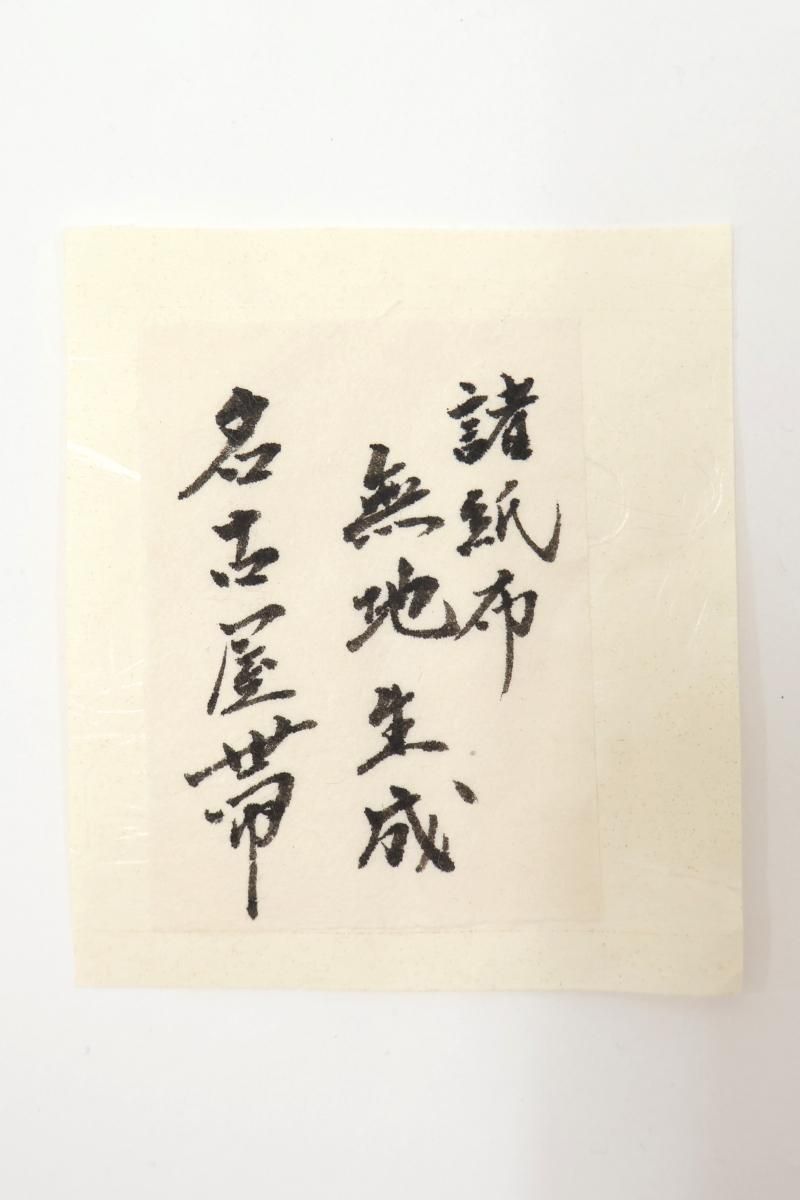 諸紙布
無地生成
名古屋帯